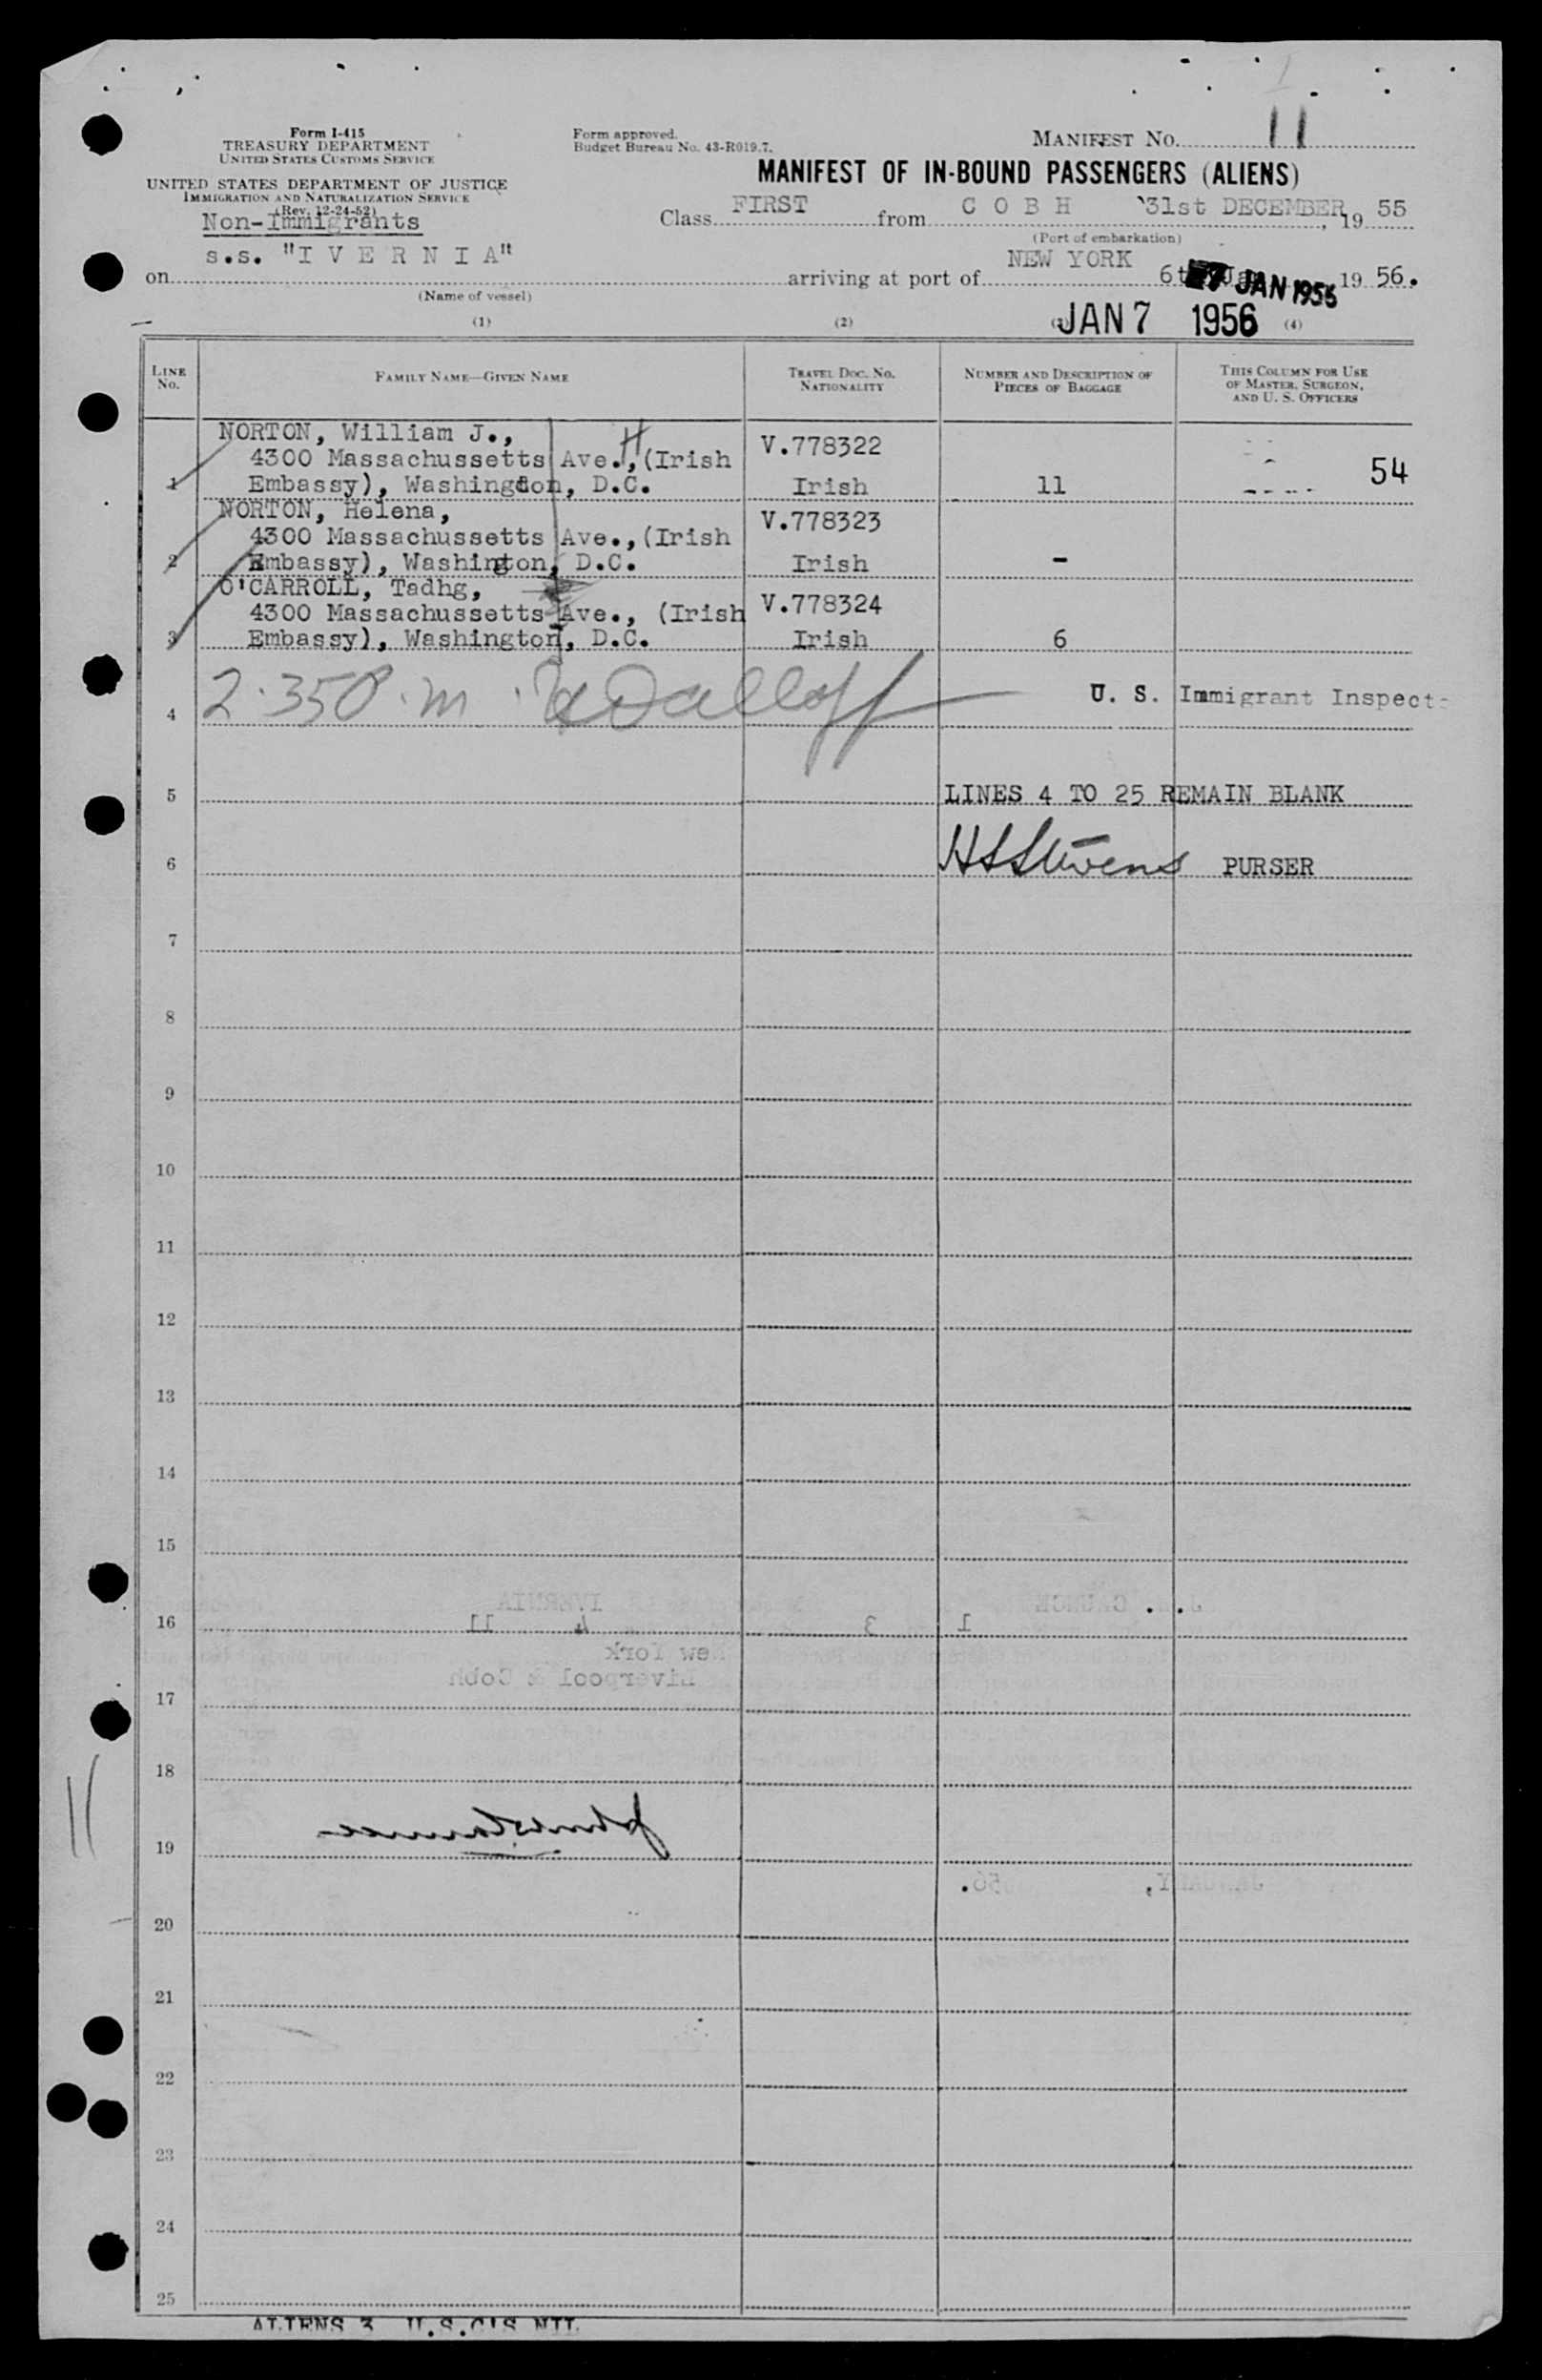 Form I-415
TREASURY DEPARTMENT
UNITED STATES CUSTOMS SERVICE
UNITED STATES DEPARTMENT OF JUSTICE
IMMIGRATION AND NATURALIZATION SERVICE
(Rev. 12-24-52)
Non-Immigrants
Form approved.
Budget Bureau No. 43-R019.7.
MANIFEST NO. 11
MANIFEST OF IN-BOUND PASSENGERS (ALIENS)
Class FIRST from C O B H 31st DECEMBER, 19 55
(Port of embarkation)
on s.s. "I V E R N I A" arriving at port of NEW YORK 6th 7 JAN 1956 19 56.
(Name of vessel)
JAN 7 1956
(1) (2) (4)
LINE NO.
FAMILY NAME—GIVEN NAME
TRAVEL DOC. NO. NATIONALITY
NUMBER AND DESCRIPTION OF PIECES OF BAGGAGE
THIS COLUMN FOR USE OF MASTER, SURGEON, AND U. S. OFFICERS
NORTON, William J.,
4300 Massachussetts Ave., (Irish V.778322
1 Embassy), Washington, D.C. Irish 11 54
NORTON, Helena,
4300 Massachussetts Ave.,(Irish V.778323
2 Embassy), Washington, D.C. Irish -
O'CARROLL, Tadhg,
4300 Massachussetts Ave., (Irish V.778324
3 Embassy), Washington, D.C. Irish 6
2.35 P.m. U. S. Immigrant Inspect
4
5 LINES 4 TO 25 REMAIN BLANK
6 HSStevens PURSER
7
8
9
10
11
12
13
14
15
IVERNIA
16 11 4 3 1
New York
Liverpool & Cobh
17
18
11
19
JANUARY, 56.
20
21
22
23
24
25
ALIENS 3 U.S.C'S NIL